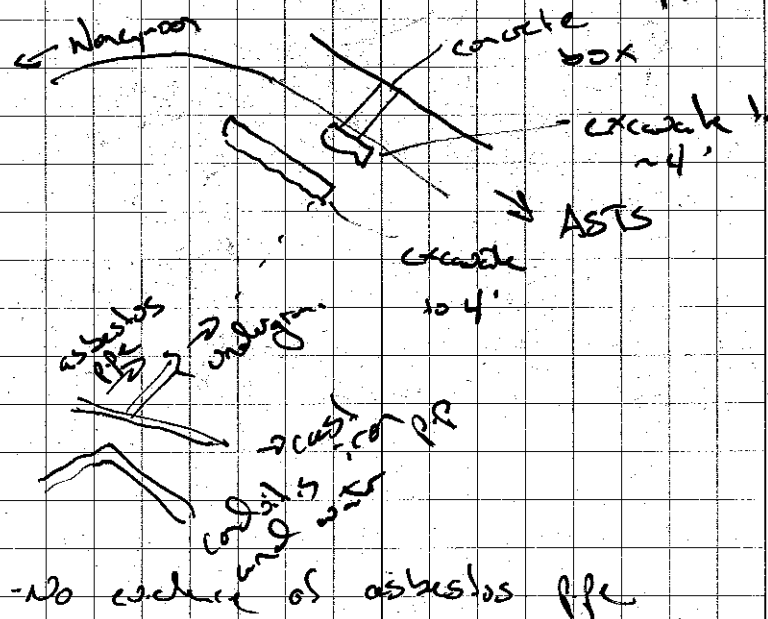 ← Honeymoon
concrete
box
- excavate
~4'
ASTS
excavate
to 4'
asbestos
pipe
undergrn.
→ cast
iron pipe
conduits
and
- No evidence of asbestos pipe